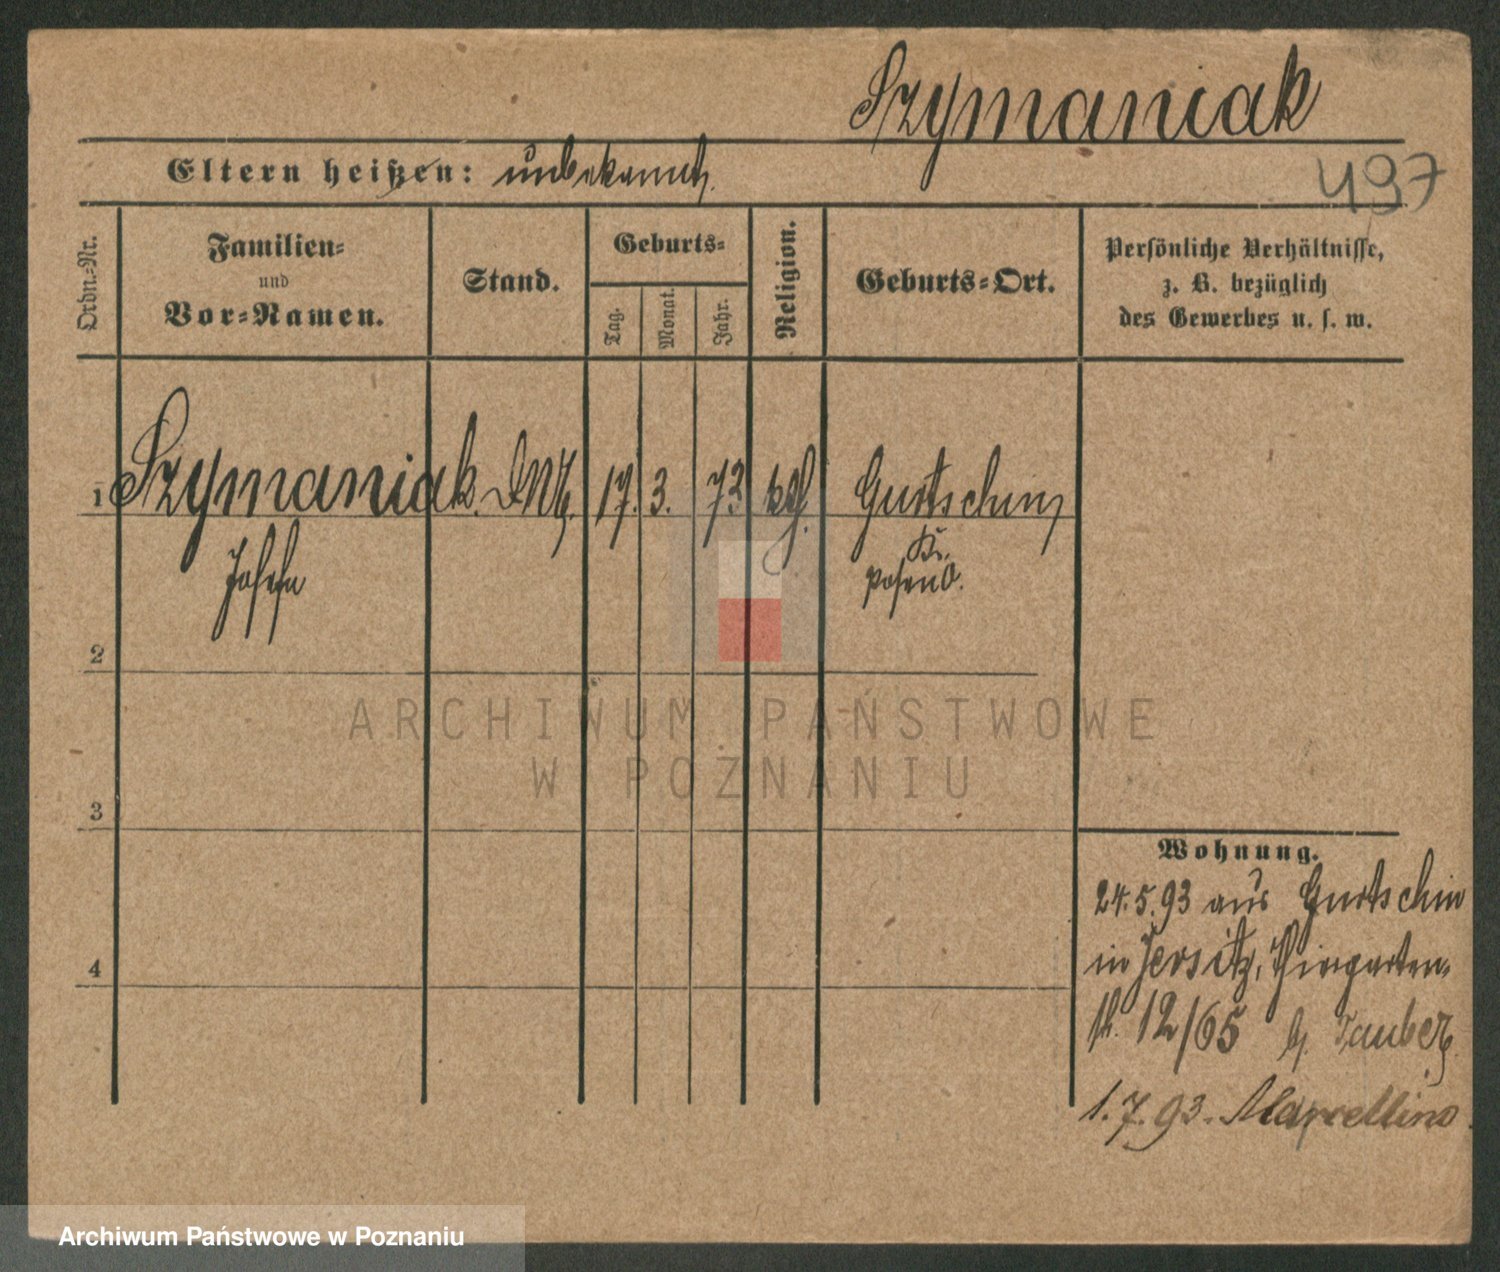 Szymaniak
497
Eltern heißen: unbekannt.
Ordn.=Nr.
Familien=
und
Vor=Namen.
Stand.
Geburts=
Tag.
Monat.
Jahr.
Religion.
Geburts=Ort.
Persönliche Verhältnisse,
z. B. bezüglich
des Gewerbes u. s. w.
1 Szymaniak. 17. 3. 73 kth. Gurtschin
Josefa Kr.
Posen O.
2
3
4
Wohnung.
24.5.93 aus Gurtschin
in Jersitz, Thiergarten=
str. 12/65 b. Tauber.
1.7.93. Marcellino
ARCHIWUM PAŃSTWOWE
W POZNANIU
Archiwum Państwowe w Poznaniu